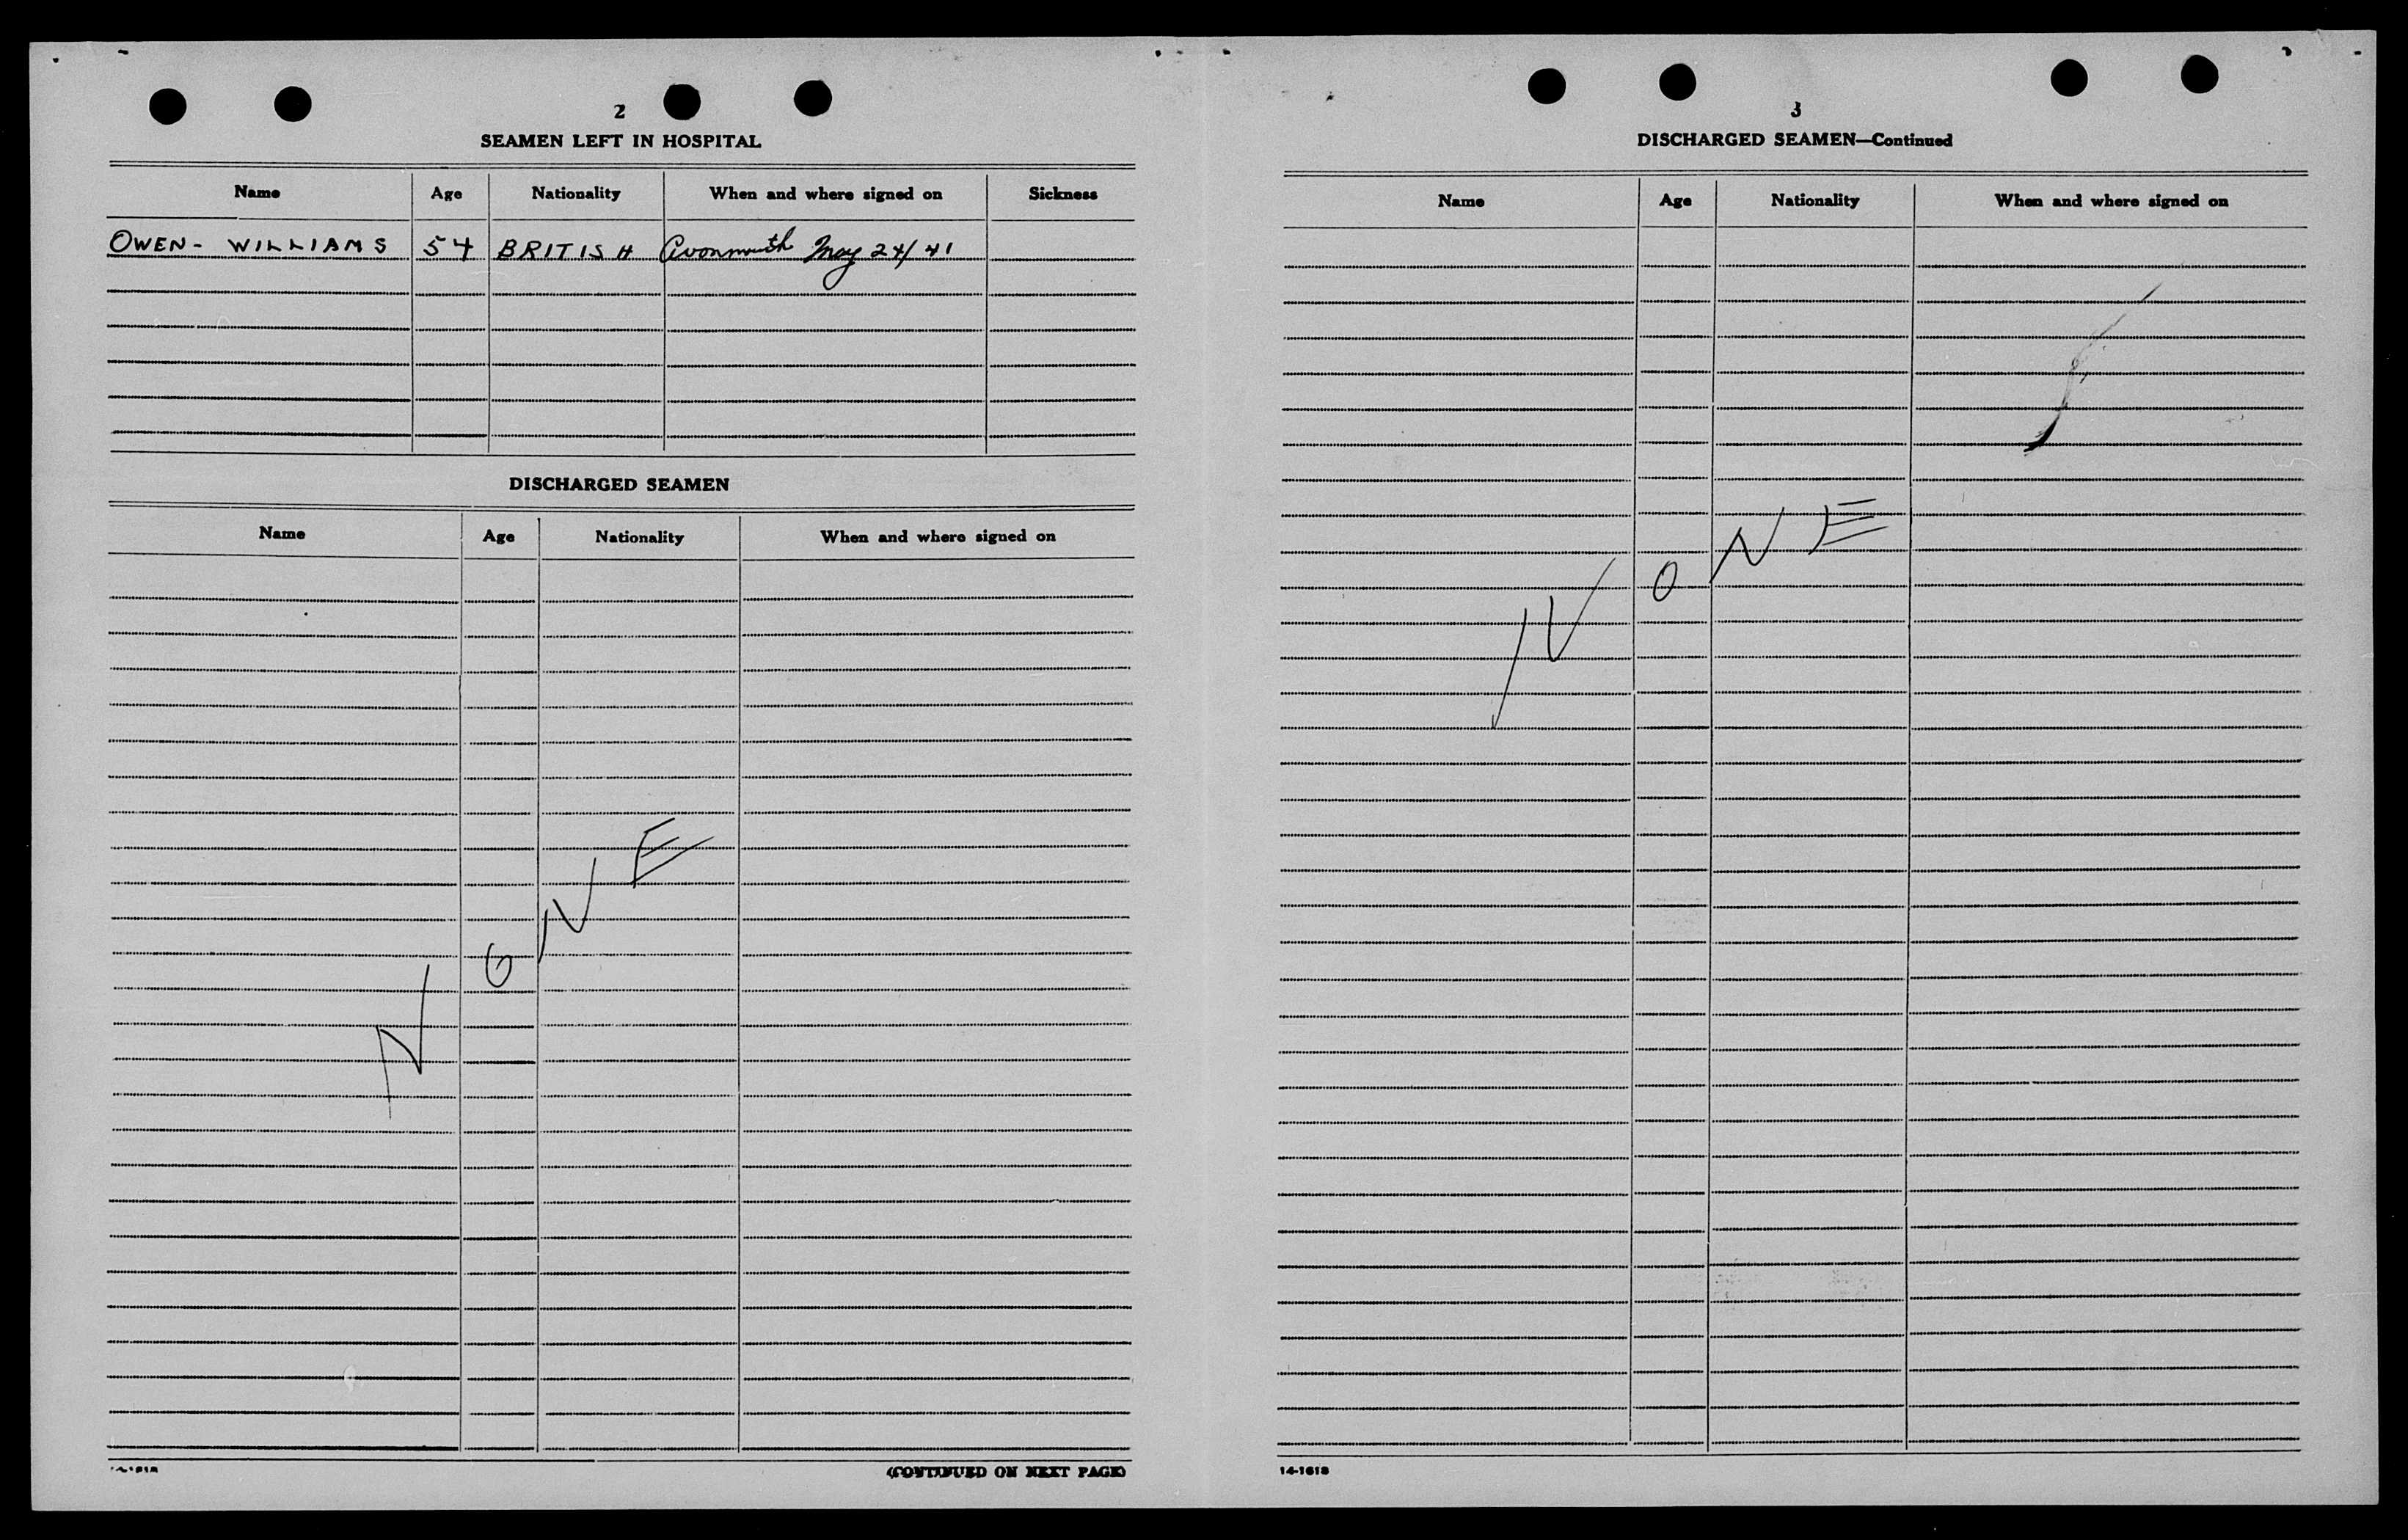 2
SEAMEN LEFT IN HOSPITAL
Name Age Nationality When and where signed on Sickness
OWEN - WILLIAMS 54 BRITISH Avonmouth May 24/41
DISCHARGED SEAMEN
Name Age Nationality When and where signed on
NONE
(CONTINUED ON NEXT PAGE)
3
DISCHARGED SEAMEN—Continued
Name Age Nationality When and where signed on
NONE
14-1618